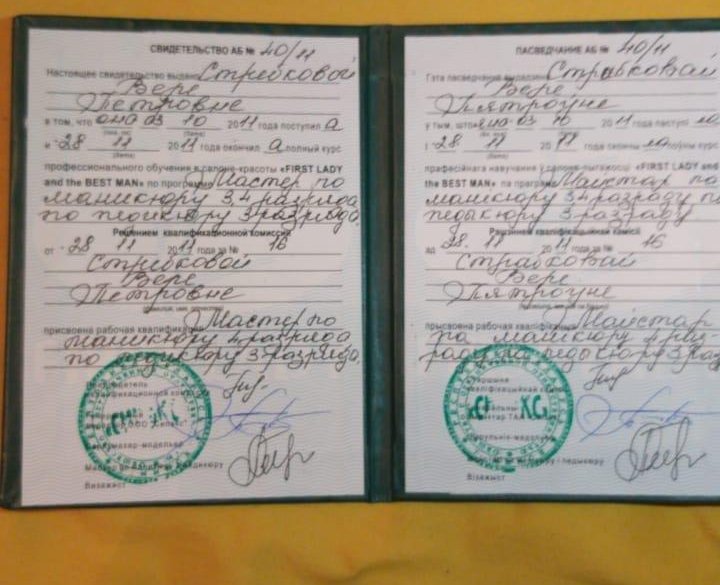 СВИДЕТЕЛЬСТВО АБ № 40/11
Настоящее свидетельство выдано Стрибковой
Вере
Петровне
в том, что она 03 10 2011 года поступил а
и 28 11 2011 года окончил а полный курс
профессионального обучения в салоне-красоты «FIRST LADY
and the BEST MAN» по программе Мастер по
маникюру 3,4 разряда
по педикюру 3 разряда.
Решением квалификационной комиссии
от 28 11 2011 года за № 16
Стрибковой
Вере
Петровне
присвоена рабочая квалификация Мастер по
маникюру 4 разряда
по педикюру 3 разряда.
Председатель
квалификационной комиссии
Парикмахер-модельер
Визажист
ПАСВЕДЧАННЕ АБ № 40/11
Гэта пасведчанне выдадзена Страбковай
Вере
Пятроўне
у тым, што яна 03 10 2011 года паступі ла
і 28 11 2011 года скончы ла поўны курс
прафесійнага навучання ў салоне-прыгажосці «FIRST LADY
and the BEST MAN» па праграме Майстар па
манікюру 3,4 разраду па
педыкюру 3 разраду
Рашэннем кваліфікацыйнай камісіі
ад 28. 11 2011 года за № 16
Страбковай
Вере
Пятроўне
прысвоена рабочая кваліфікацыя Майстар
па манікюру 4 раз-
раду па педыкюру 3 разр
Старшыня
кваліфікацыйнай камісіі
Цырульнік-мадэльер
Візажыст